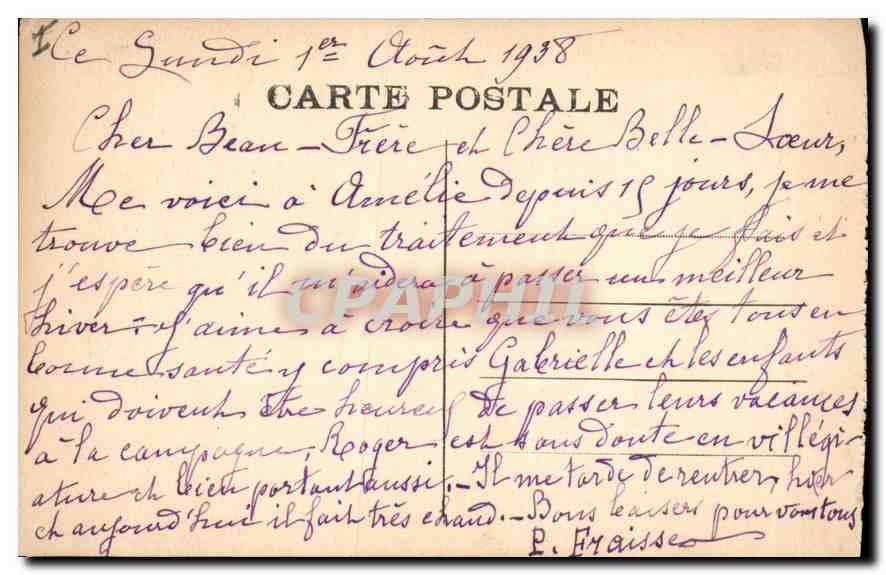 Ce Lundi 1er Août 1938
CARTE POSTALE
Cher Beau-Frère et Chère Belle-Sœur,
Me voici à Amélie depuis 15 jours, je me
trouve bien du traitement que je fais et
j'espère qu'il m'aidera à passer un meilleur
hiver. J'aime à croire que vous êtes tous en
bonne santé y compris Gabrielle et les enfants
qui doivent être heureux de passer leurs vacances
à la campagne, Roger est sans doute en villégi-
ature et bien portant aussi. - Il me tarde de rentrer, hier
et aujourd'hui il fait très chaud. - Bons baisers pour vous tous
P. Fraisse
CPAPHIL